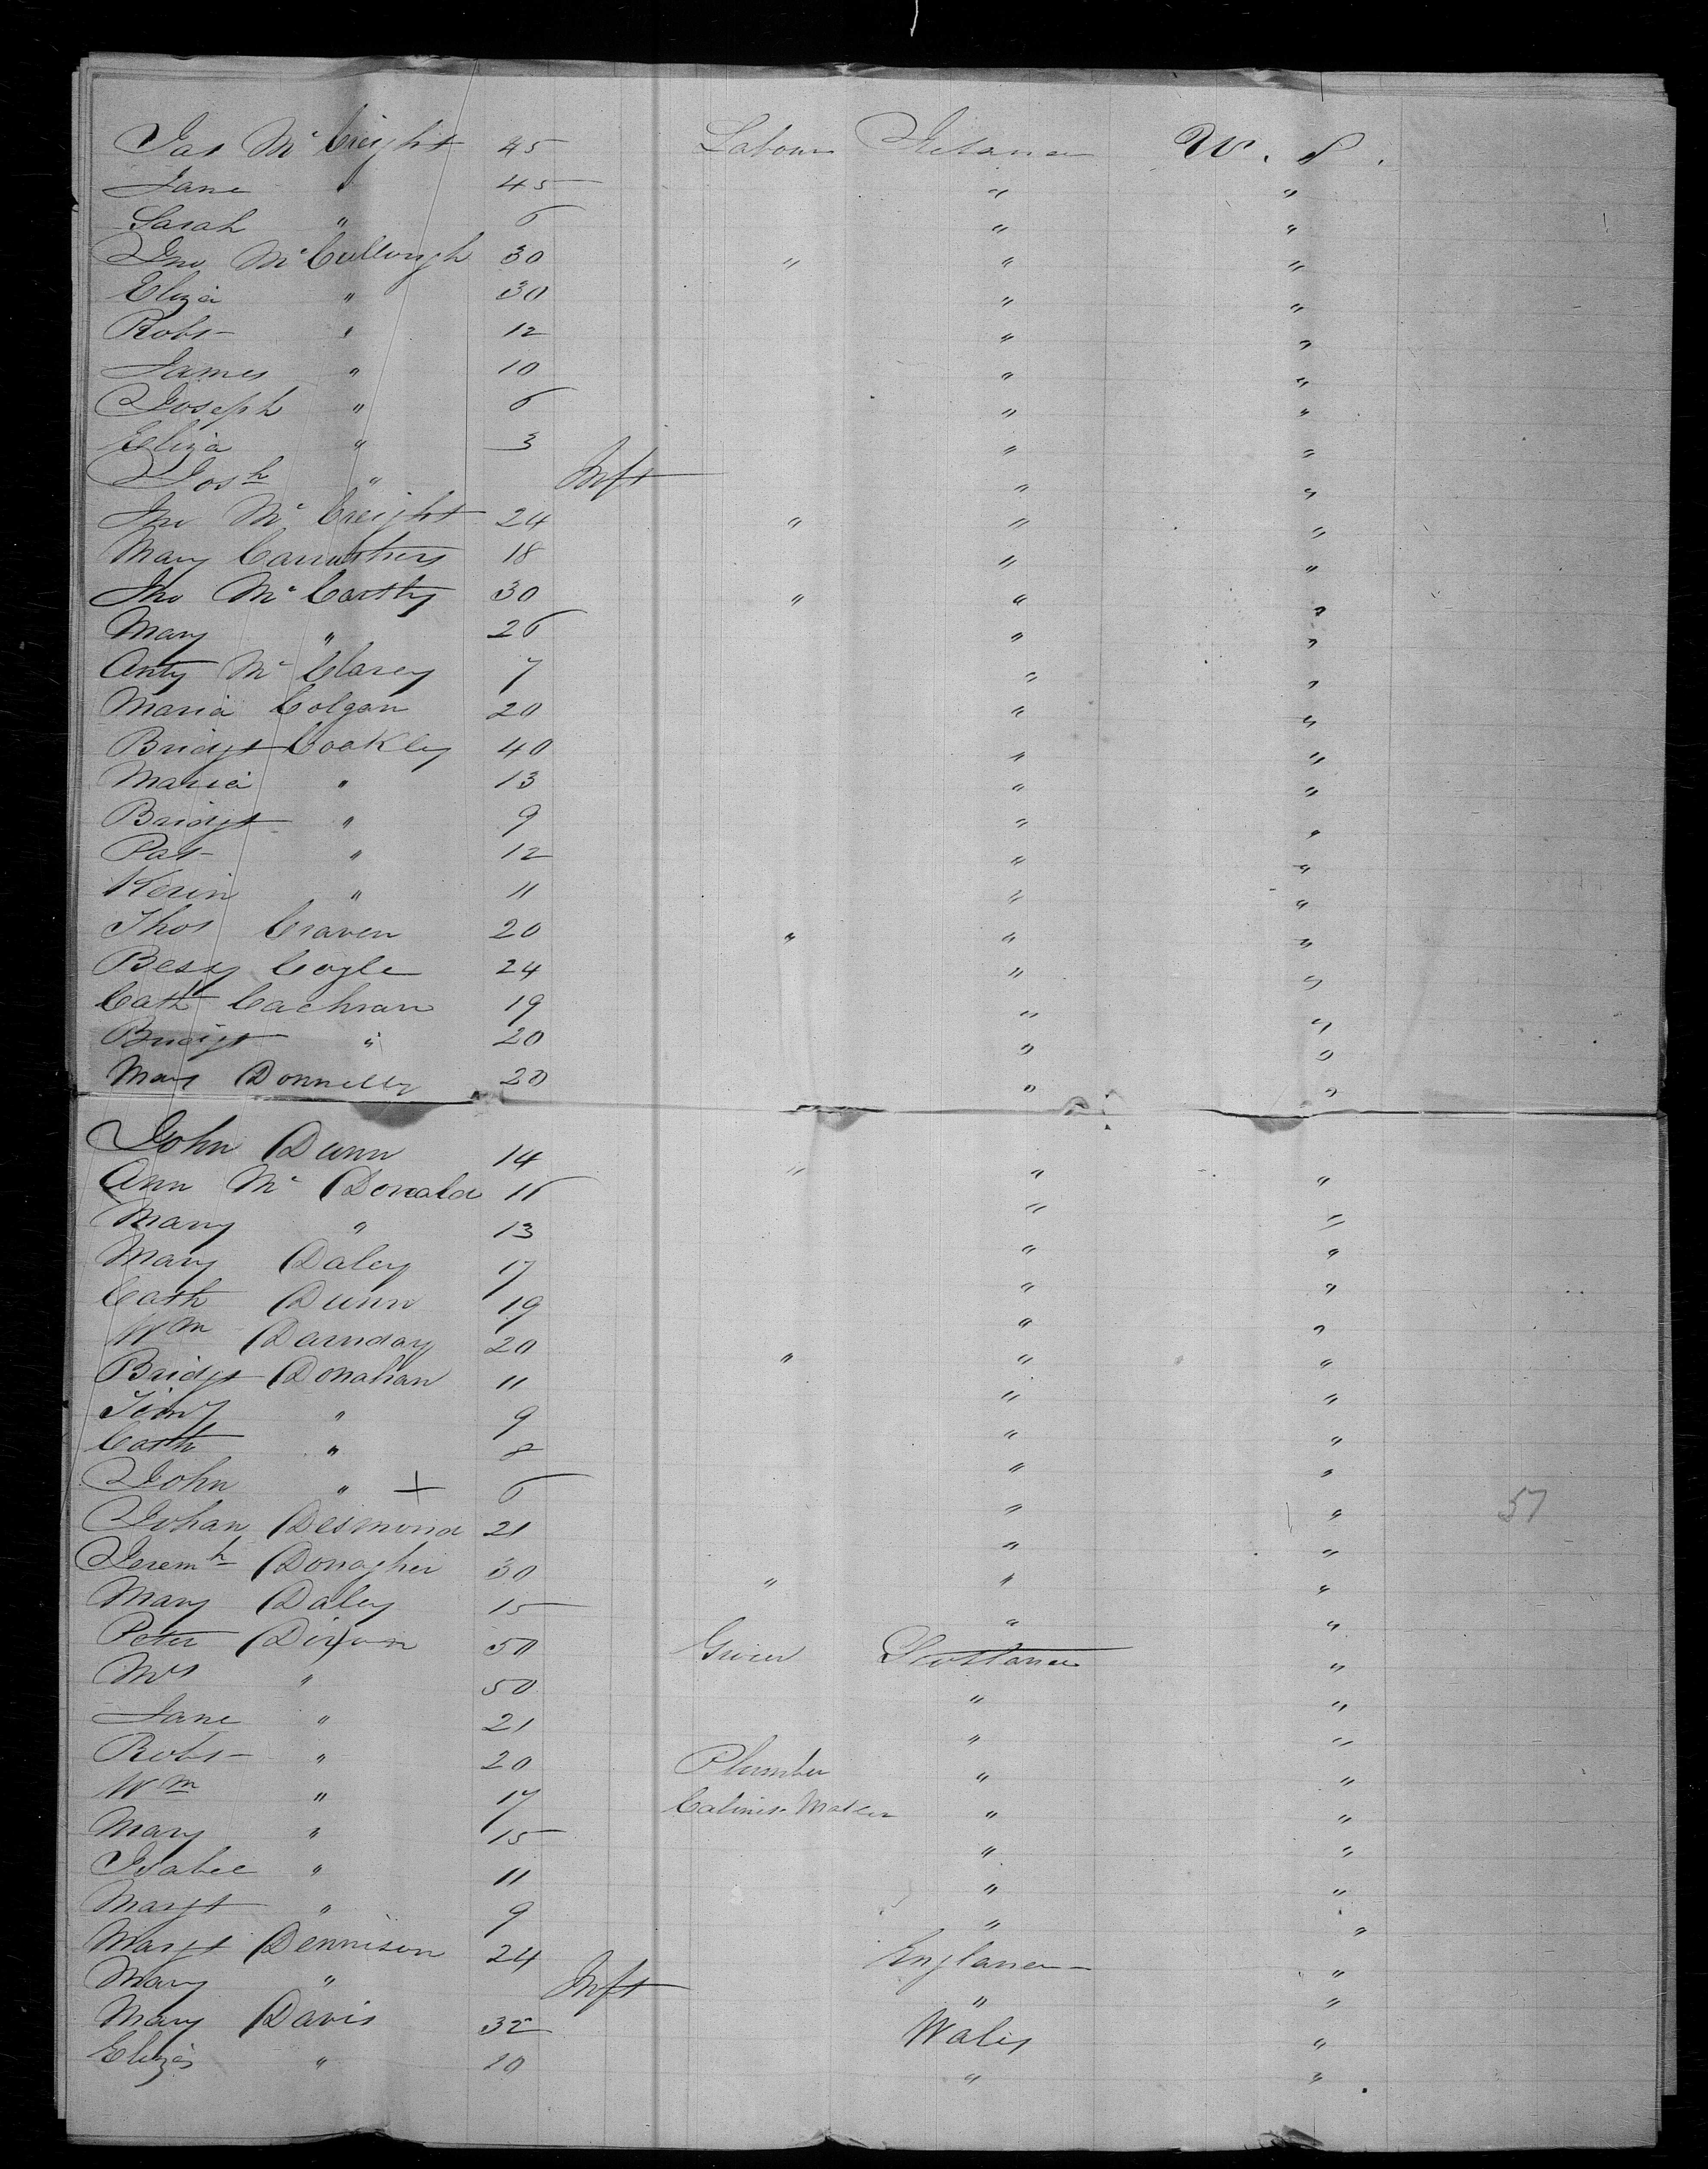 Jas McCreight 45 Labour Ireland U. S.
Jane " 45 " "
Sarah " 6 " "
Jno McCullough 30 " " "
Eliza " 30 " "
Robt " 12 " "
James " 10 " "
Joseph " 6 " "
Eliza " 3 " "
Josh " Inft " "
Jno McCreight 24 " " "
Mary Carruthers 18 " "
Jno McCarthy 30 " " "
Mary " 26 " "
Anty McClarey 7 " "
Maria Colgan 20 " "
Bridgt Coakley 40 " "
Maria " 13 " "
Bridgt " 9 " "
Pat " 12 " "
Kerin " 11 " "
Thos Craven 20 " " "
Bessy Coyle 24 " "
Cath Cachran 19 " "
Bridgt " 20 " "
Mary Donnelly 20 " "
John Dunn 14 " " "
Ann McDonald 16 " "
Mary " 13 " "
Mary Daley 17 " "
Cath Dunn 19 " "
Wm Darnday 20 " " "
Bridgt Donahan 11 " "
Timy " 9 " "
Cath " 8 " "
John " + 6 " "
Johan Desmond 21 " "
Jeremh Donagher 30 " " "
Mary Daley 15 " "
Peter Dixon 50 Grocer Scotland "
Mrs " 50 " "
Jane " 21 " "
Robt " 20 Plumber " "
Wm " 17 Cabinet Maker " "
Mary " 15 " "
Isabel " 11 " "
Margt " 9 " "
Margt Dennison 24 England "
Mary " Inft " "
Mary Davis 32 Wales "
Eliza " 10 " "
57